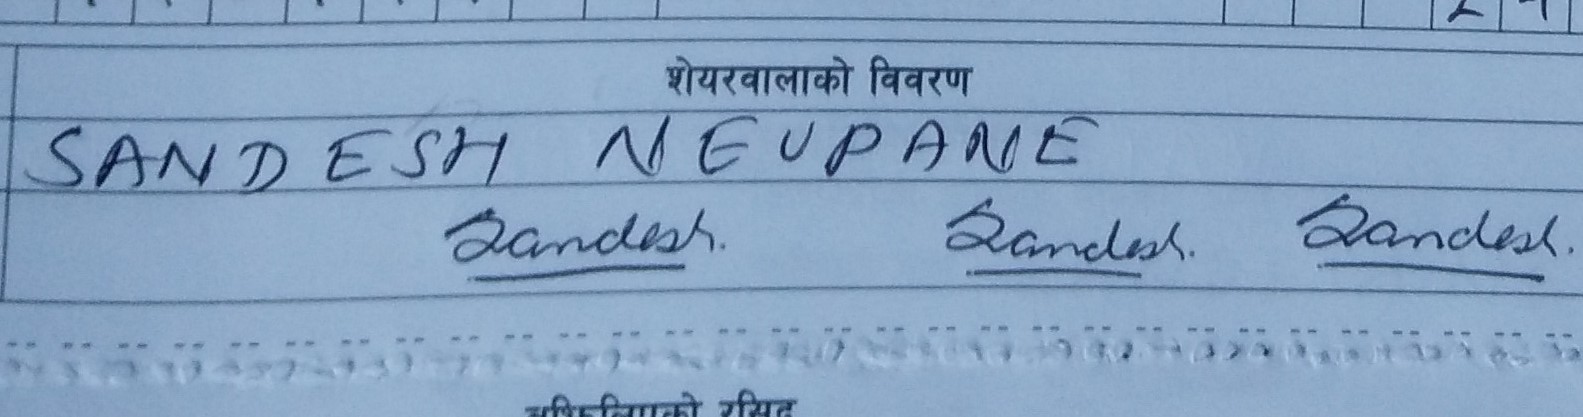 शेयरवालाको विवरण
SANDESH NEUPANE
Sandesh. Sandesh. Sandesh.
रसिद